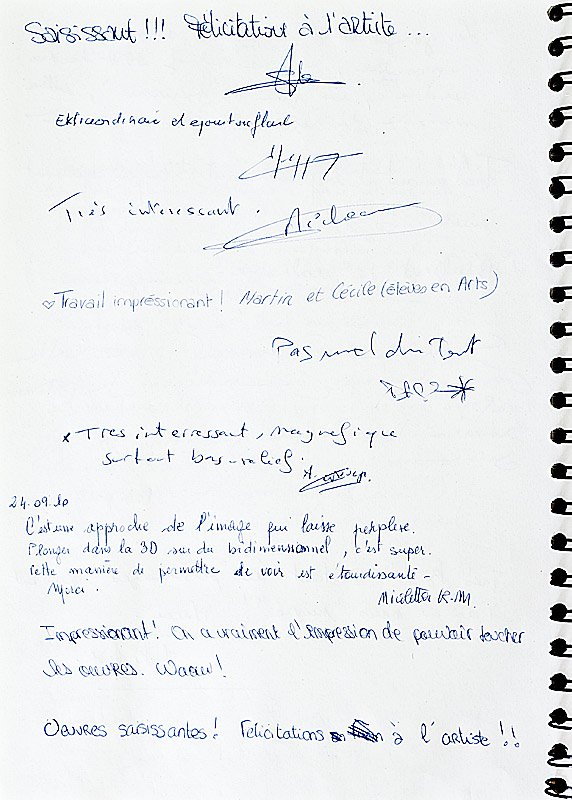 Saisissant !!! Félicitations à l'artiste ...
Extraordinaire et époustouflant
Très interessant .
♡ Travail impréssionant ! Martin et Cécile (élèves en Arts)
Pas mal du Tout
x Tres interressant, magnefique
surtout bas-relief.
24.09.10
C'est une approche de l'image qui laisse perplexe.
Plonger dans la 3D sur du bidimensionnel, c'est super.
Cette manière de permettre de voir est étourdissante -
Merci. 
Impressionant ! On a vraiment l'impression de pouvoir toucher
les œuvres. Waow !
Oeuvres saisissantes ! Félicitations à l'artiste !!